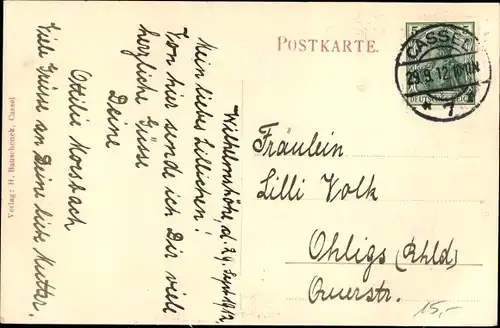 POSTKARTE.
CASSEL
29.9.12
* 7
DEUTSCHES REICH
Wilhelmshöhe, d. 29. Sept. 1912.
Mein liebes Lillichen!
Von hier sende ich Dir viele
herzliche Grüsse
Deine
Ottilie Morsbach
Viele Grüsse an Deine liebe Mutter.
Fräulein
Lilli Volk
Ohligs (Rhld)
Querstr.
15,-
Verlag: H. Bauschonck, Cassel